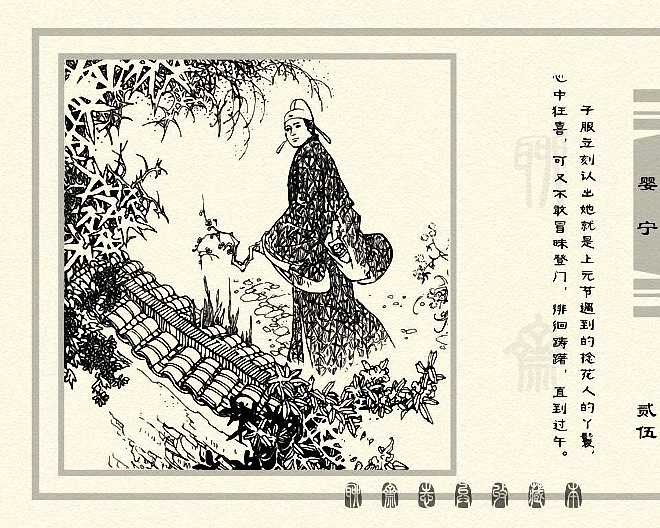 子服立刻认出她就是上元节遇到的捻花人的丫鬟，
心中狂喜，可又不敢冒昧登门，徘徊踌躇，直到过午。
婴宁
贰伍
聊斋
聊斋志异收藏本